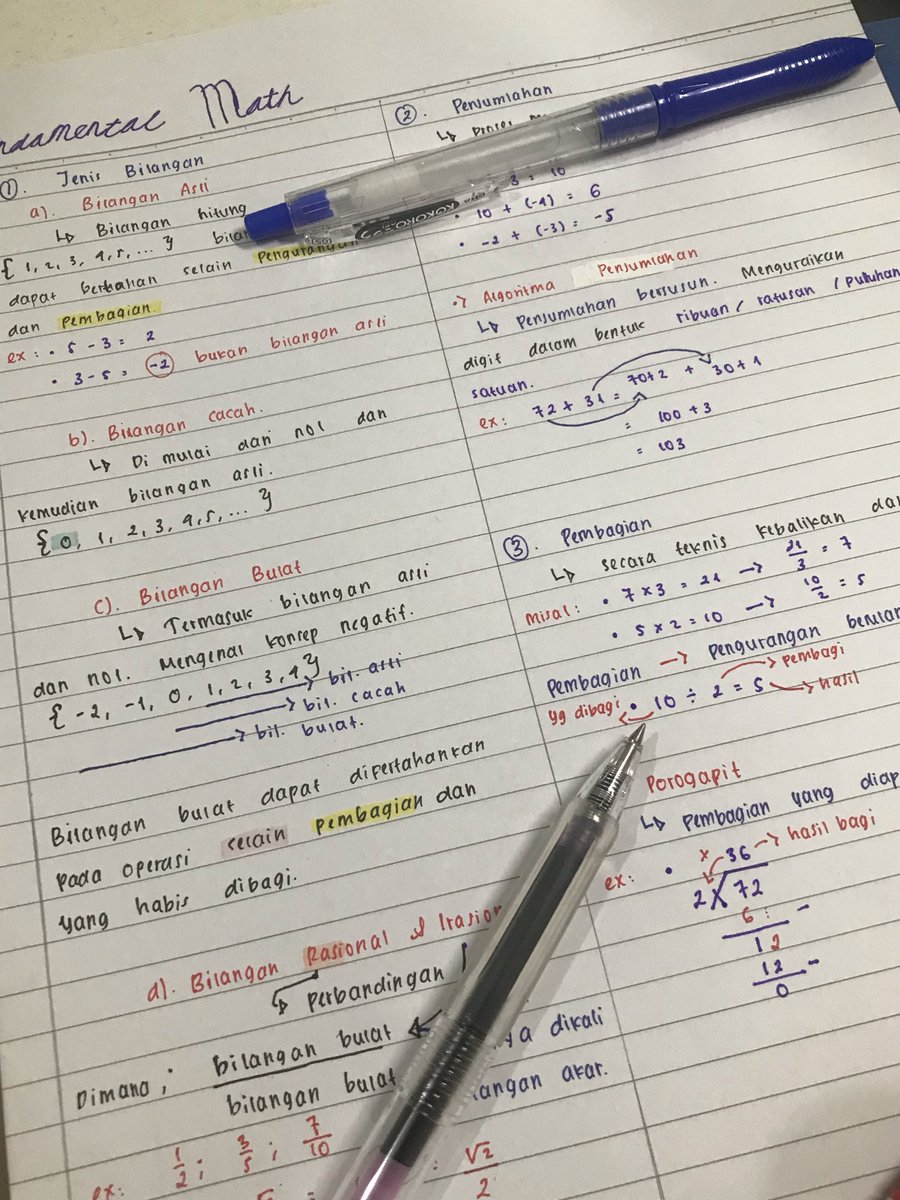 Fundamental Math
①. Jenis Bilangan
a). Bilangan Asli
↳ Bilangan hitung
{ 1, 2, 3, 4, 5, ... }
dapat bertahan selain pengurangan
dan pembagian.
ex : • 5 - 3 = 2
• 3 - 5 = -2 bukan bilangan asli
b). Bilangan cacah.
↳ Di mulai dari nol dan
kemudian bilangan asli.
{ 0, 1, 2, 3, 4, 5, ... }
c). Bilangan Bulat
↳ Termasuk bilangan asli
dan nol. Mengenal konsep negatif.
{ -2, -1, 0, 1, 2, 3, 4 }
→ bil. asli
→ bil. cacah
→ bil. bulat.
Bilangan bulat dapat dipertahankan
pada operasi selain pembagian dan
yang habis dibagi.
d). Bilangan Rasional & Irasion
↳ Perbandingan
Dimana ; bilangan bulat
bilangan bulat
ya dikali
akar.
ex: 1/2 ; 3/5 ; 7/10
√2/2
②. Penjumlahan
↳ proses
3 = 10
• 10 + (-4) = 6
• -2 + (-3) = -5
•> Algoritma Penjumlahan
↳ Penjumlahan bersusun. Menguraikan
digit dalam bentuk ribuan / ratusan / puluhan
satuan.
ex: 72 + 31 = 70+2 + 30+1
= 100 + 3
= 103
③. Pembagian
↳ secara teknis kebalikan dar
misal : • 7 x 3 = 21 → 21/3 = 7
• 5 x 2 = 10 → 10/2 = 5
Pembagian → pengurangan berulan
→ pembagi
yg dibagi • 10 ÷ 2 = 5 → hasil
Porogapit
↳ Pembagian yang diap
ex: • x 36 → hasil bagi
2 / 72
6 -
12
12 -
0
KOKORO